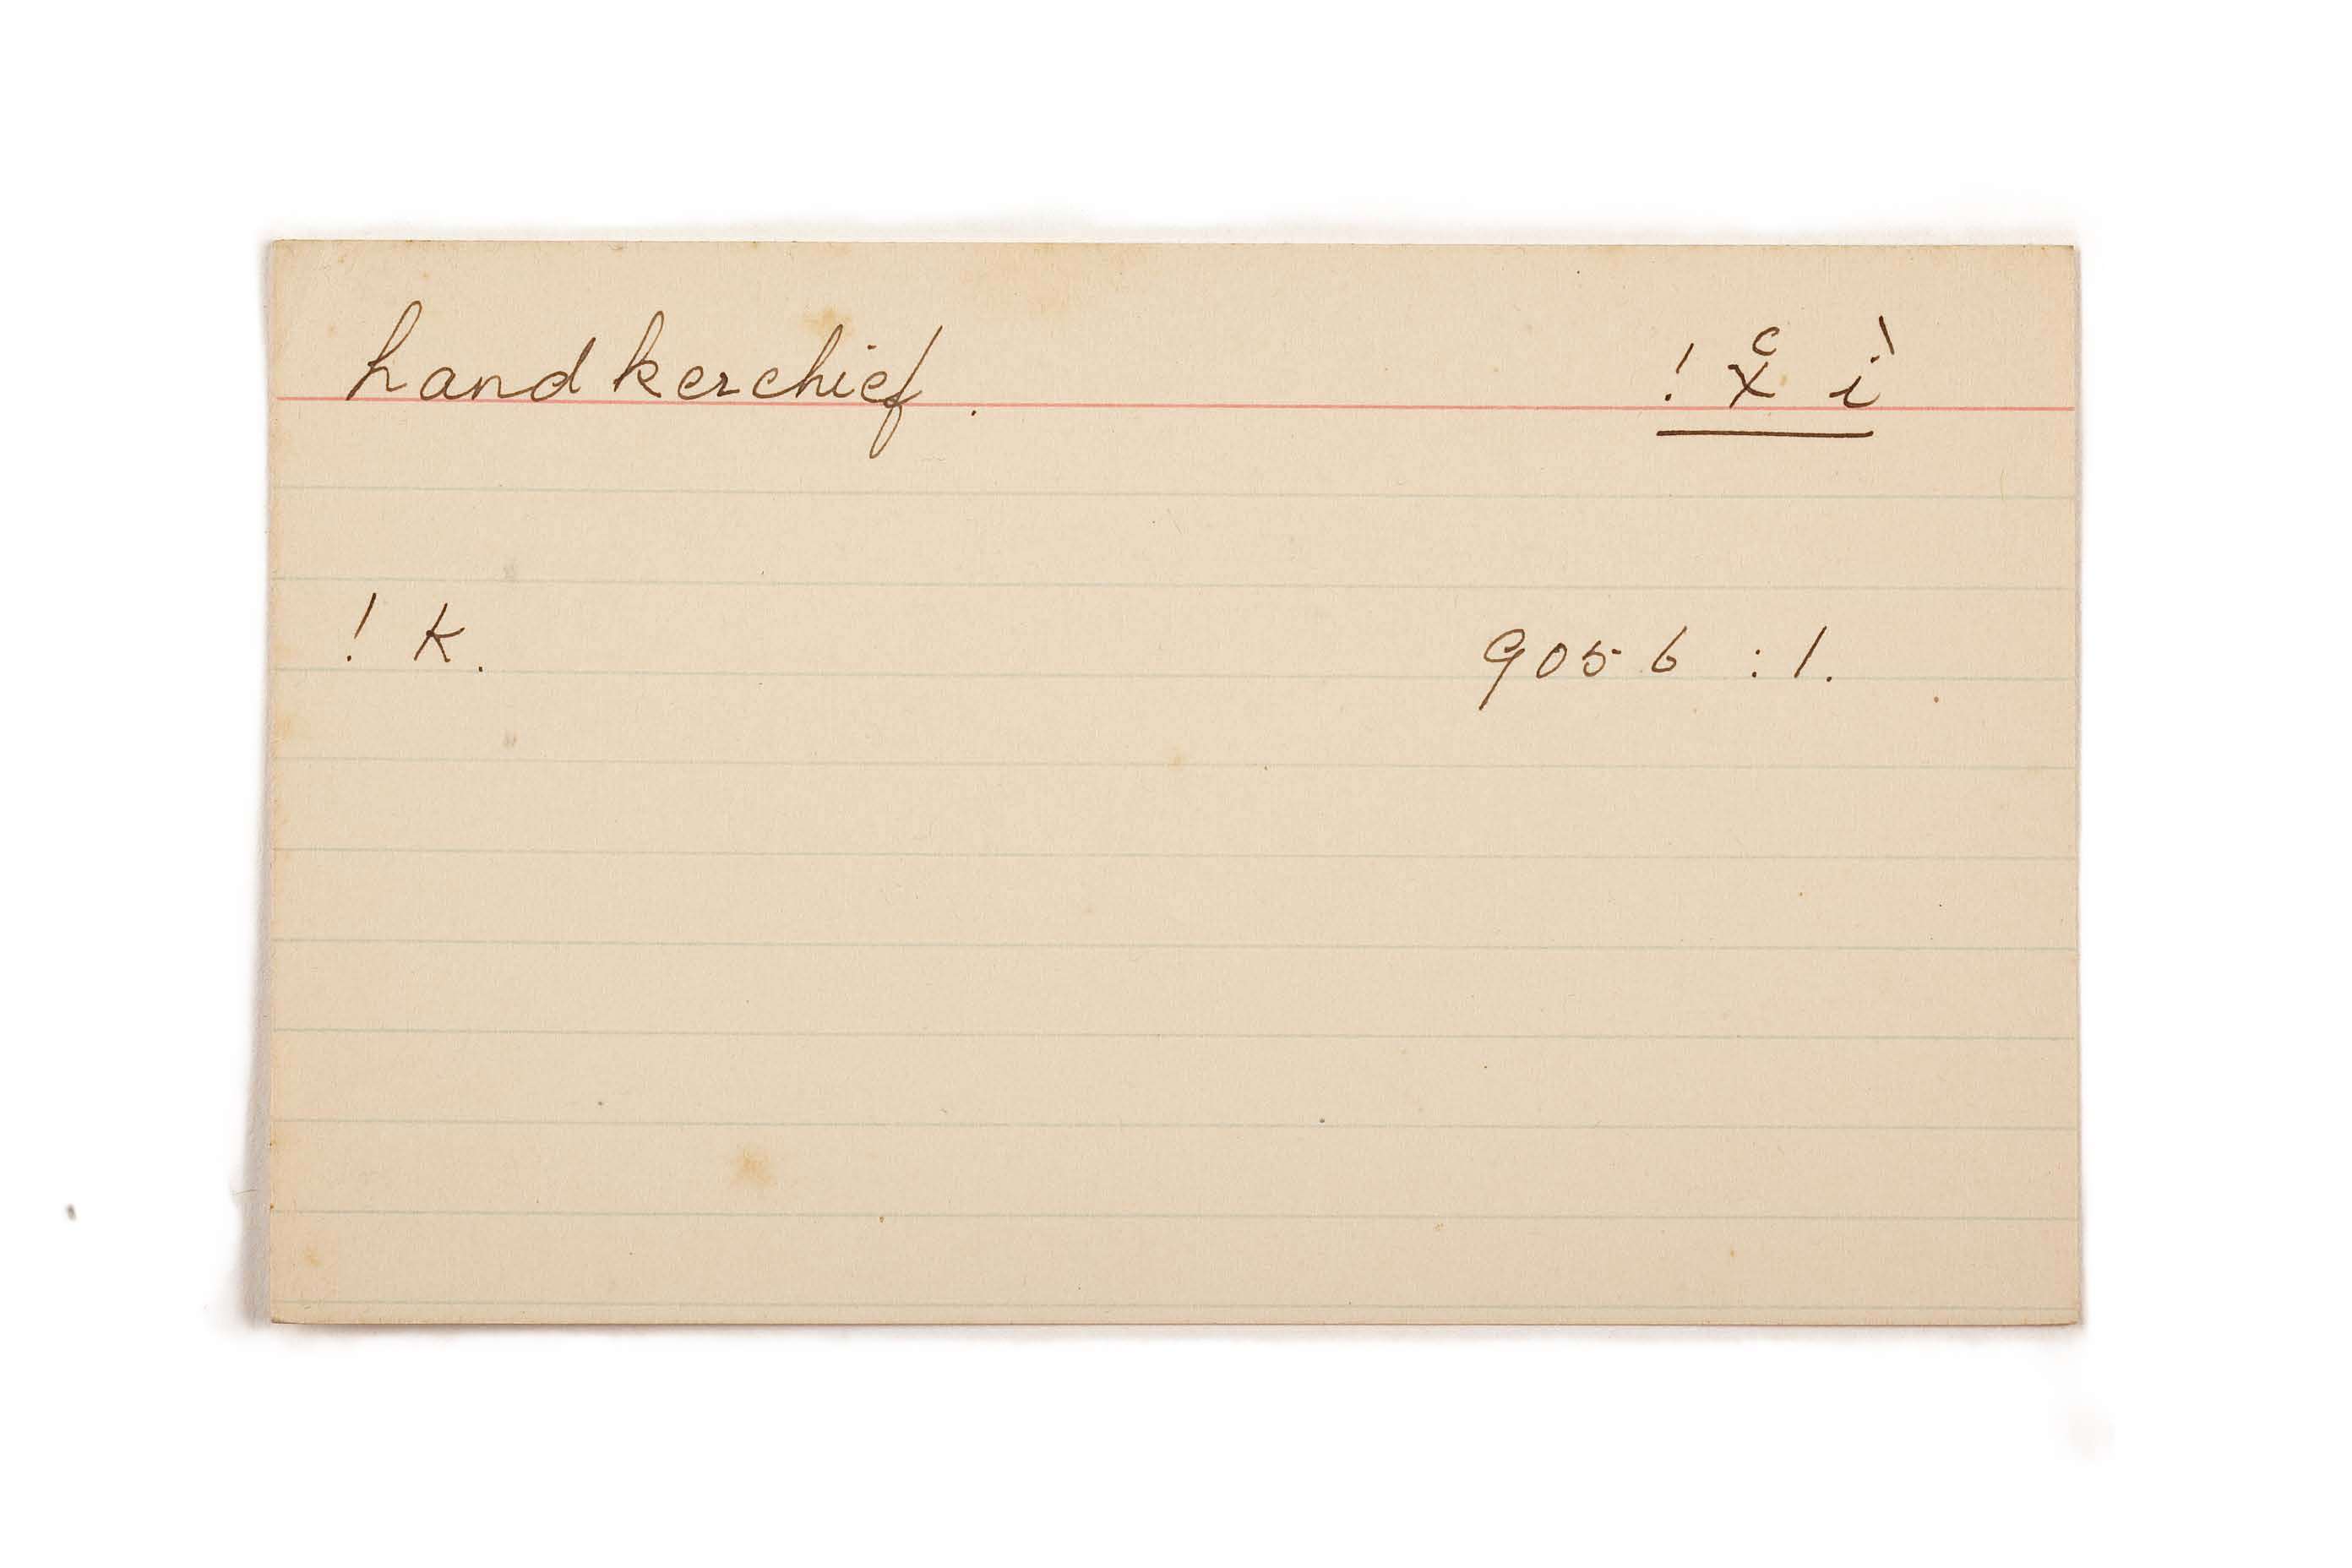 handkerchief. ! χͨ ì
! k. 9056 : 1.